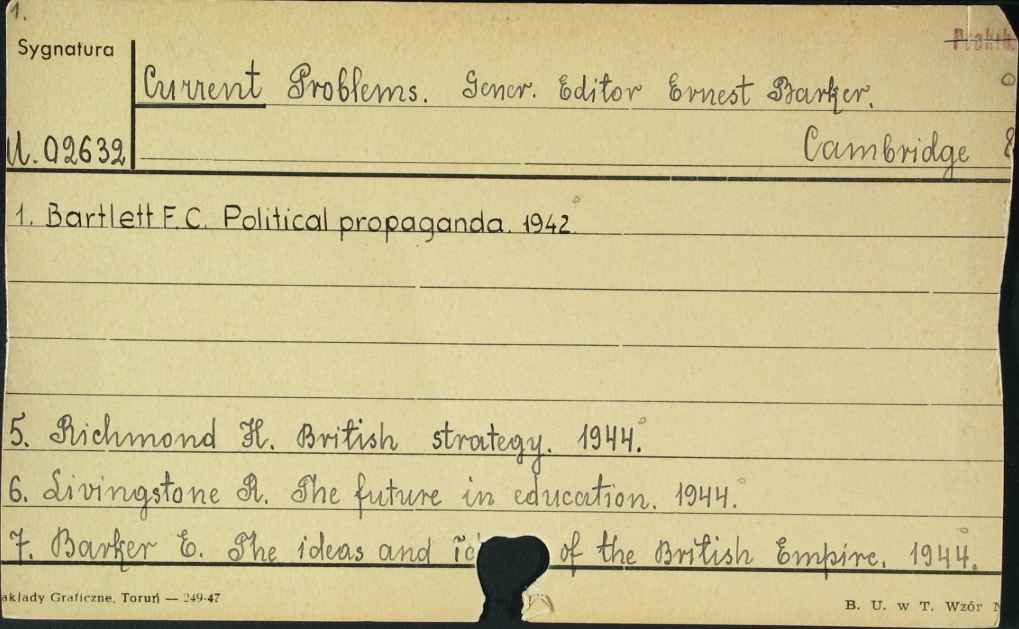 1.
Sygnatura
Current Problems. Gener. Editor Ernest Barker.
U. 02632
Cambridge 8
1. Bartlett F.C. Political propaganda. 1942.
5. Richmond H. British strategy. 1944.
6. Livingstone R. The future in education. 1944.
7. Barker E. The ideas and of the British Empire. 1944.
akłady Graficzne, Toruń — 249-47
B. U. w T. Wzór